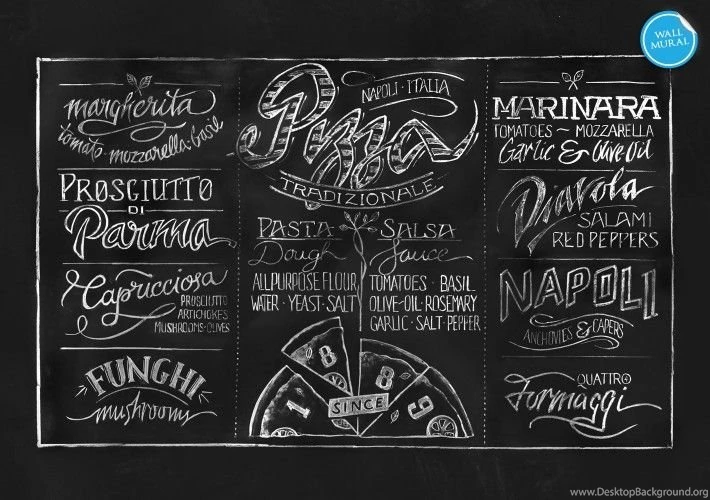 WALL
MURAL
margherita
tomato · mozzarella · basil
PROSCIUTTO
DI
Parma
Capricciosa
PROSCIUTTO
ARTICHOKES
MUSHROOMS · OLIVES
FUNGHI
mushrooms
NAPOLI · ITALIA
Pizza
TRADIZIONALE
PASTA
Dough
ALLPURPOSE FLOUR
WATER · YEAST · SALT
SALSA
Sauce
TOMATOES · BASIL
OLIVE-OIL · ROSEMARY
GARLIC · SALT · PEPPER
1 8 8 9
SINCE
MARINARA
TOMATOES ~ MOZZARELLA
Garlic & Olive Oil
Diavola
SALAMI
RED PEPPERS
NAPOLI
ANCHOVIES & CAPERS
QUATTRO
Formaggi
www.DesktopBackground.org